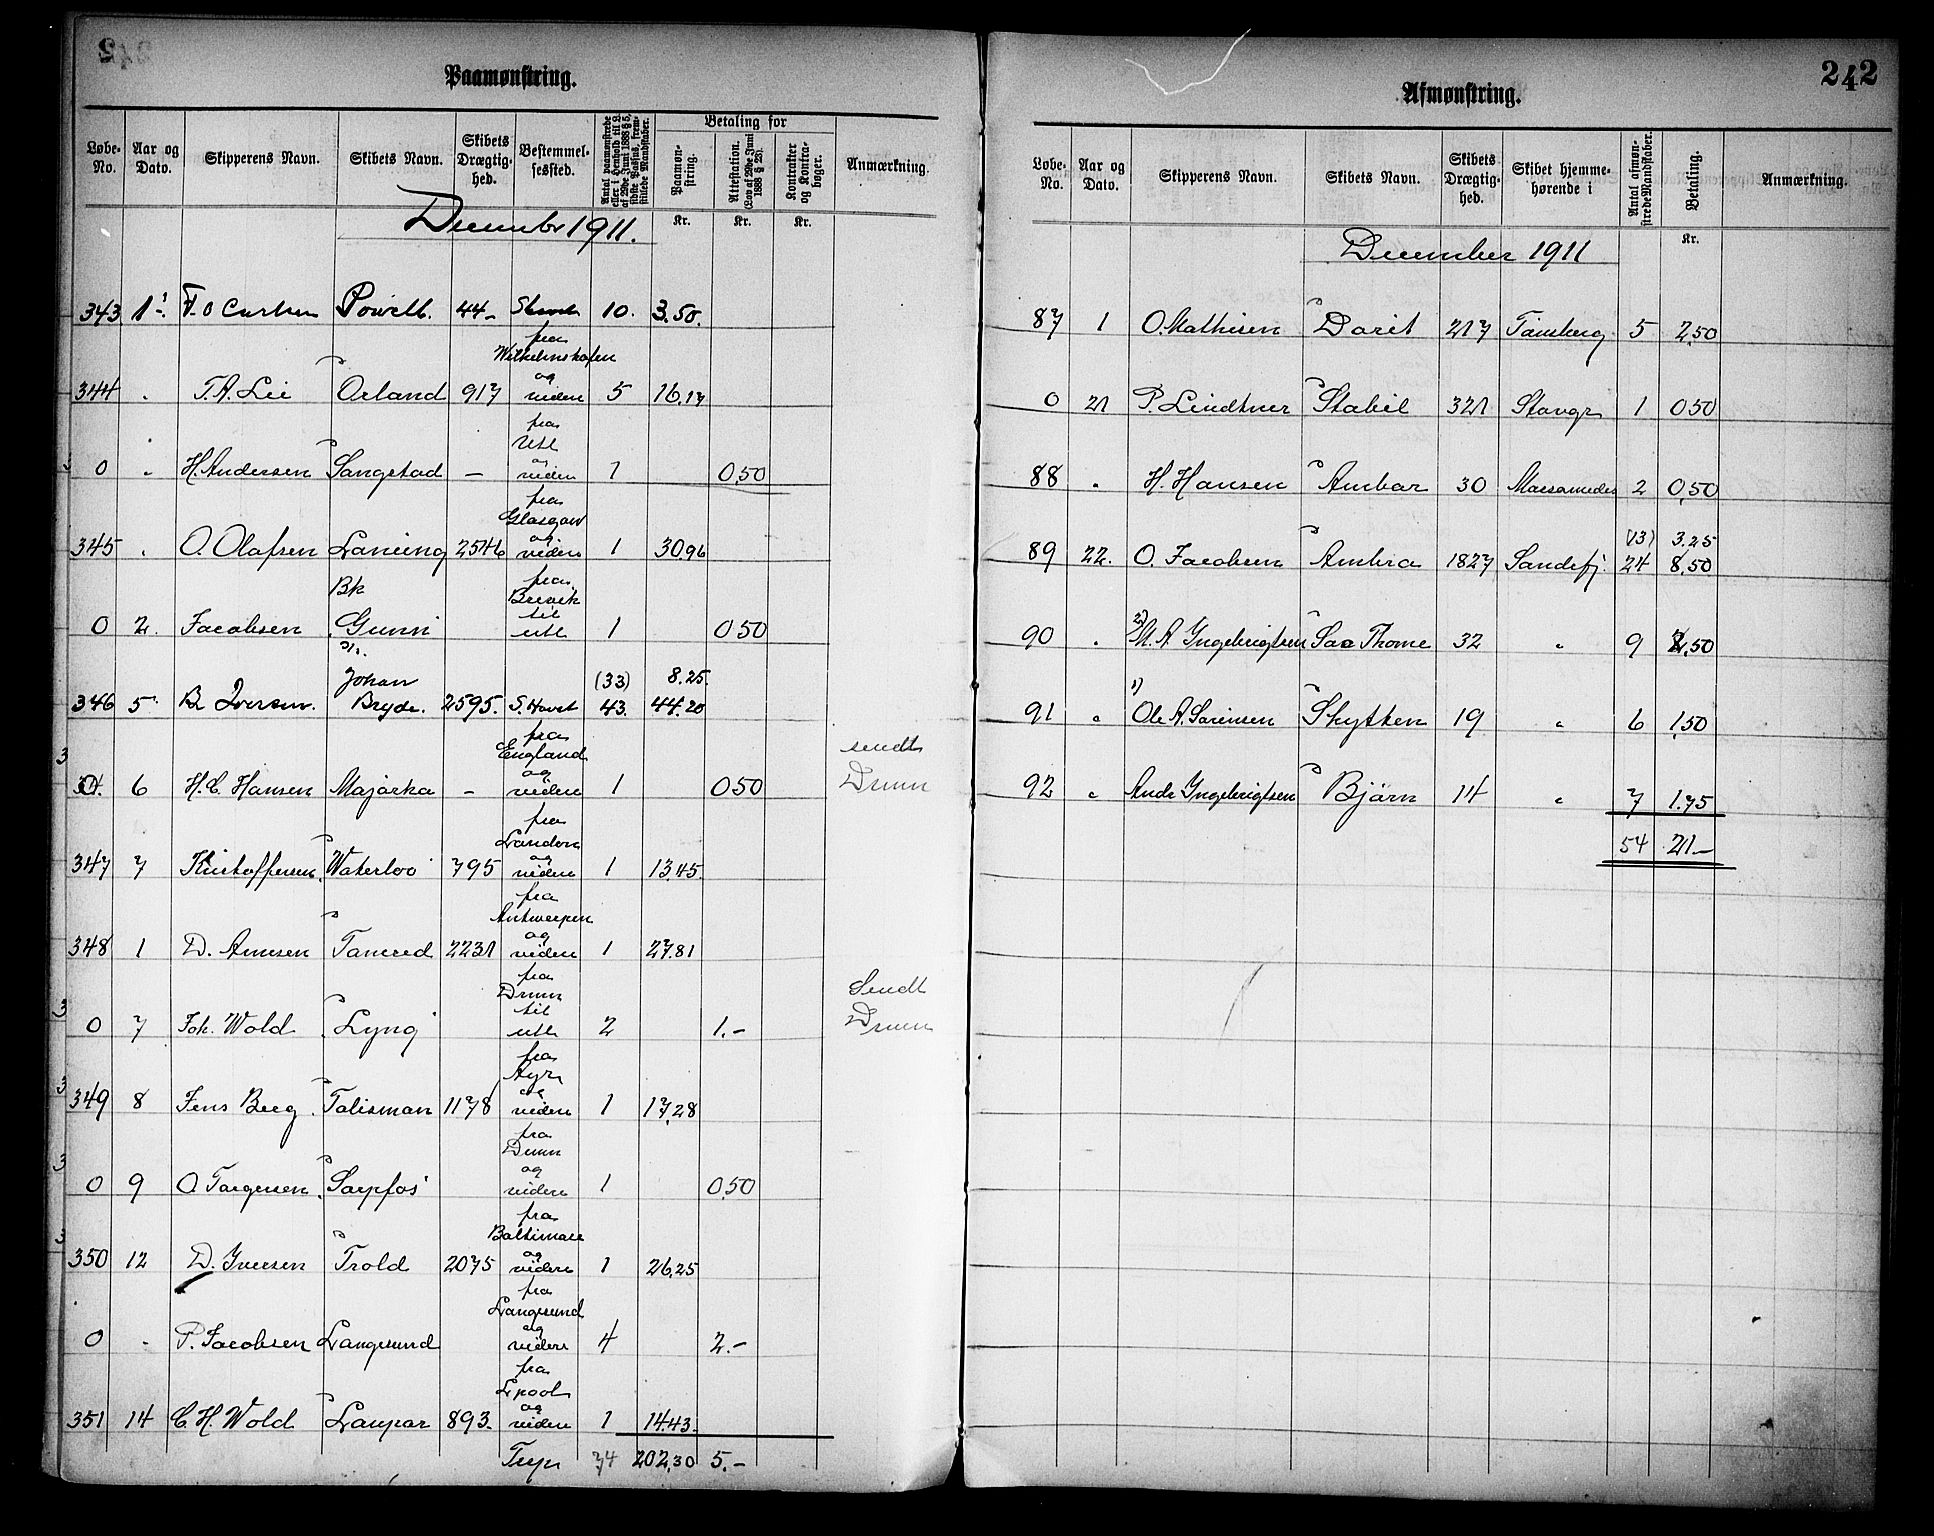 Paamønstring.
Løbe-No. Aar og Dato. Skipperens Navn. Skibets Navn. Skibets Drægtighed. Bestemmelsessted. Antal paamønstrede eller i Henhold til L. af 29de Juni 1888 § 5, sidste Passus, fremstillede Mandskaber. Betaling for Paamønstring. Attestation. (Lov af 29de Juni 1888 § 23). Kontrakter og Kontrabøger. Anmærkning.
Kr. Kr. Kr.
December 1911.
343 1 F. O Carlsen Powell. 44- 10. 3.50.
fra
Wilhelmshafen
og
344 . T. A. Lie Orland 917 videre 5 16.17
fra
Utl
og
0 " H. Andersen Sangstad - videre 1 0,50
fra
Glasgow
og
345 . O. Olafsen Laning 2546 videre 1 30.96
fra
Bk Brevik
til
0 2. Jacobsen Gunn utl 1 050
Johan (33) 8.25.
346 5 B Iversen. Bryde. 2595. S. Havet 43. 44.20
fra
England
og sendt
0. 6 H. C. Hansen Majorka - videre 1 050 Drmn
fra
London
og
347 7 Kristoffersen Waterloo 795 videre 1 13.45
fra
Antwerpen
og
348 1 D. Arnesen Tancred 2231 videre 1 27.81
fra
Drmn
til Sendt
0 7 Joh. Wold Lyng utl 2 1.- Drmn
fra
Ayr
og
349 8 Jens Berg Talisman 1178 videre 1 17,28
fra
Drmn
og
0 9 O Torgersen Sarpfos videre 1 0,50
fra
Baltimore
og
350 12 D. Iversen Trold 2075 videre 1 26,25
fra
Langesund
og
0 - P. Jacobsen Langesund videre 4 2.-
fra
Lpool
og
351 14 C. H. Wold Laupar 893. videre 1 14.43.
74 202,30 5.-
242
Afmønstring.
Løbe-No. Aar og Dato. Skipperens Navn. Skibets Navn. Skibets Drægtighed. Skibet hjemmehørende i Antal afmønstrede Mandskaber. Betaling. Anmærkning.
Kr.
December 1911
87 1 O. Mathisen Dorit 217 Tønsberg 5 2,50
0 21 P. Lindtner Stabil 321 Stavgr 1 050
88 " H. Hansen Ambar 30 Mossamedes 2 0,50
(13) 3.25
89 22. O. Jacobsen Ambra 1827 Sandefj. 24 8,50
2)
90 " M. A Ingebrigtsen Sao Thome 32 " 9 2,50
1)
91 " Ole A. Sørensen Skytten 19 " 6 1,50
92 " Andr Ingebrigtsen Bjørn 14 " 7 1.75
54 21.-